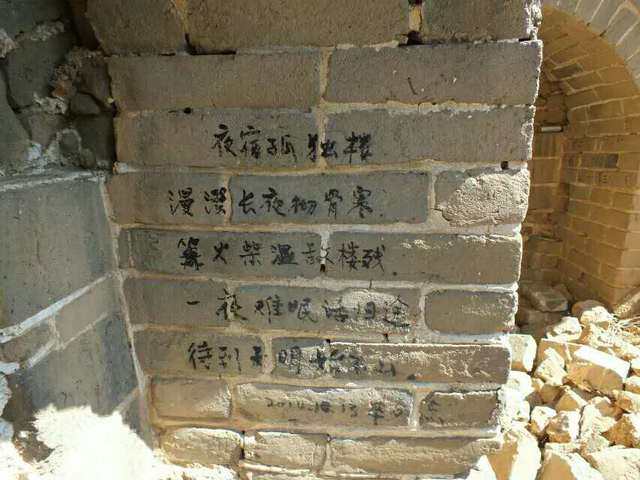 夜宿孤独楼
漫漫长夜彻骨寒
篝火柴温敌楼残
一夜难眠话旧途
待到天明始下山
2014.10.13